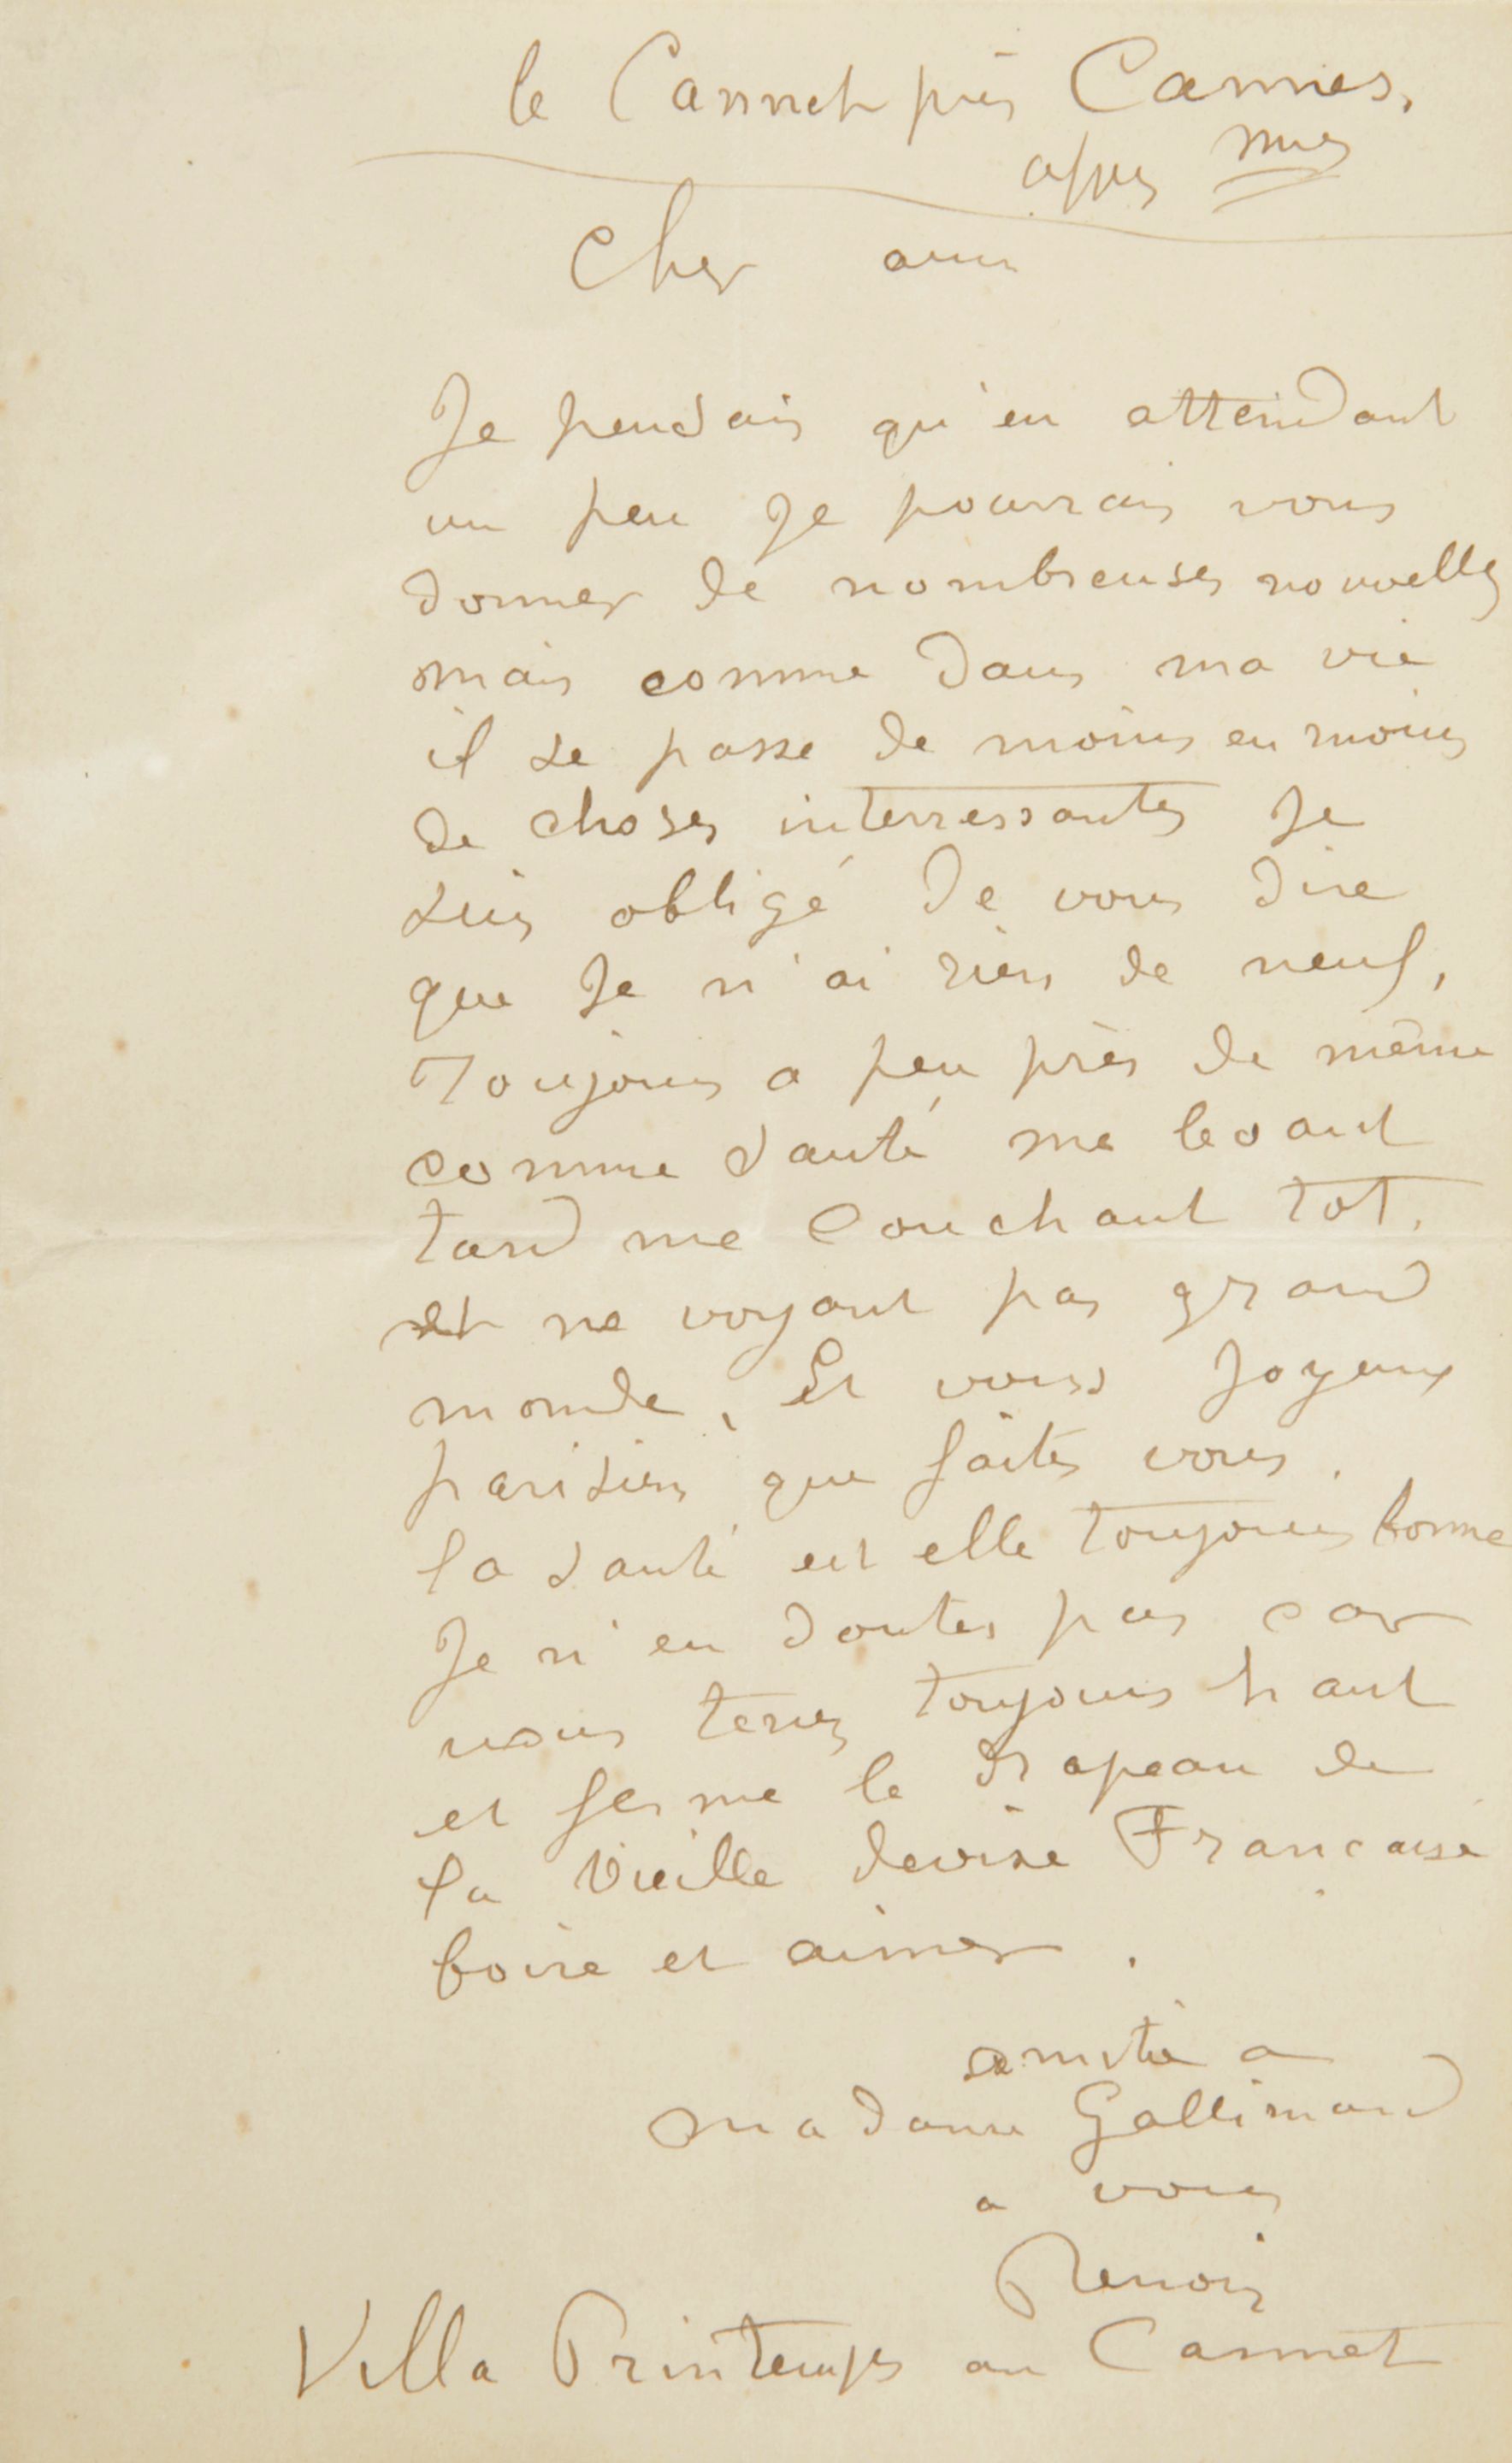 le Cannet près Cannes.
alpes mes
Cher ami
Je pensais qu'en attendant
un peu Je pourrais vous
donner de nombreuses nouvelles
mais comme dans ma vie
il se passe de moins en moins
de choses interressantes Je
suis obligé de vous dire
que Je n'ai rien de neuf,
Toujours a peu près de même
comme santé me levant
tard me couchant tot.
et ne voyant pas grand
monde, Et vous Joyeux
parisien que faites vous.
la santé est elle toujours bonne
Je n'en doutes pas car
vous tenez toujours haut
et ferme le drapeau de
la vieille devise Française
boire et aimer.
amitié a
madame Gallimard
a vous
Renoir
Villa Printemps au Cannet